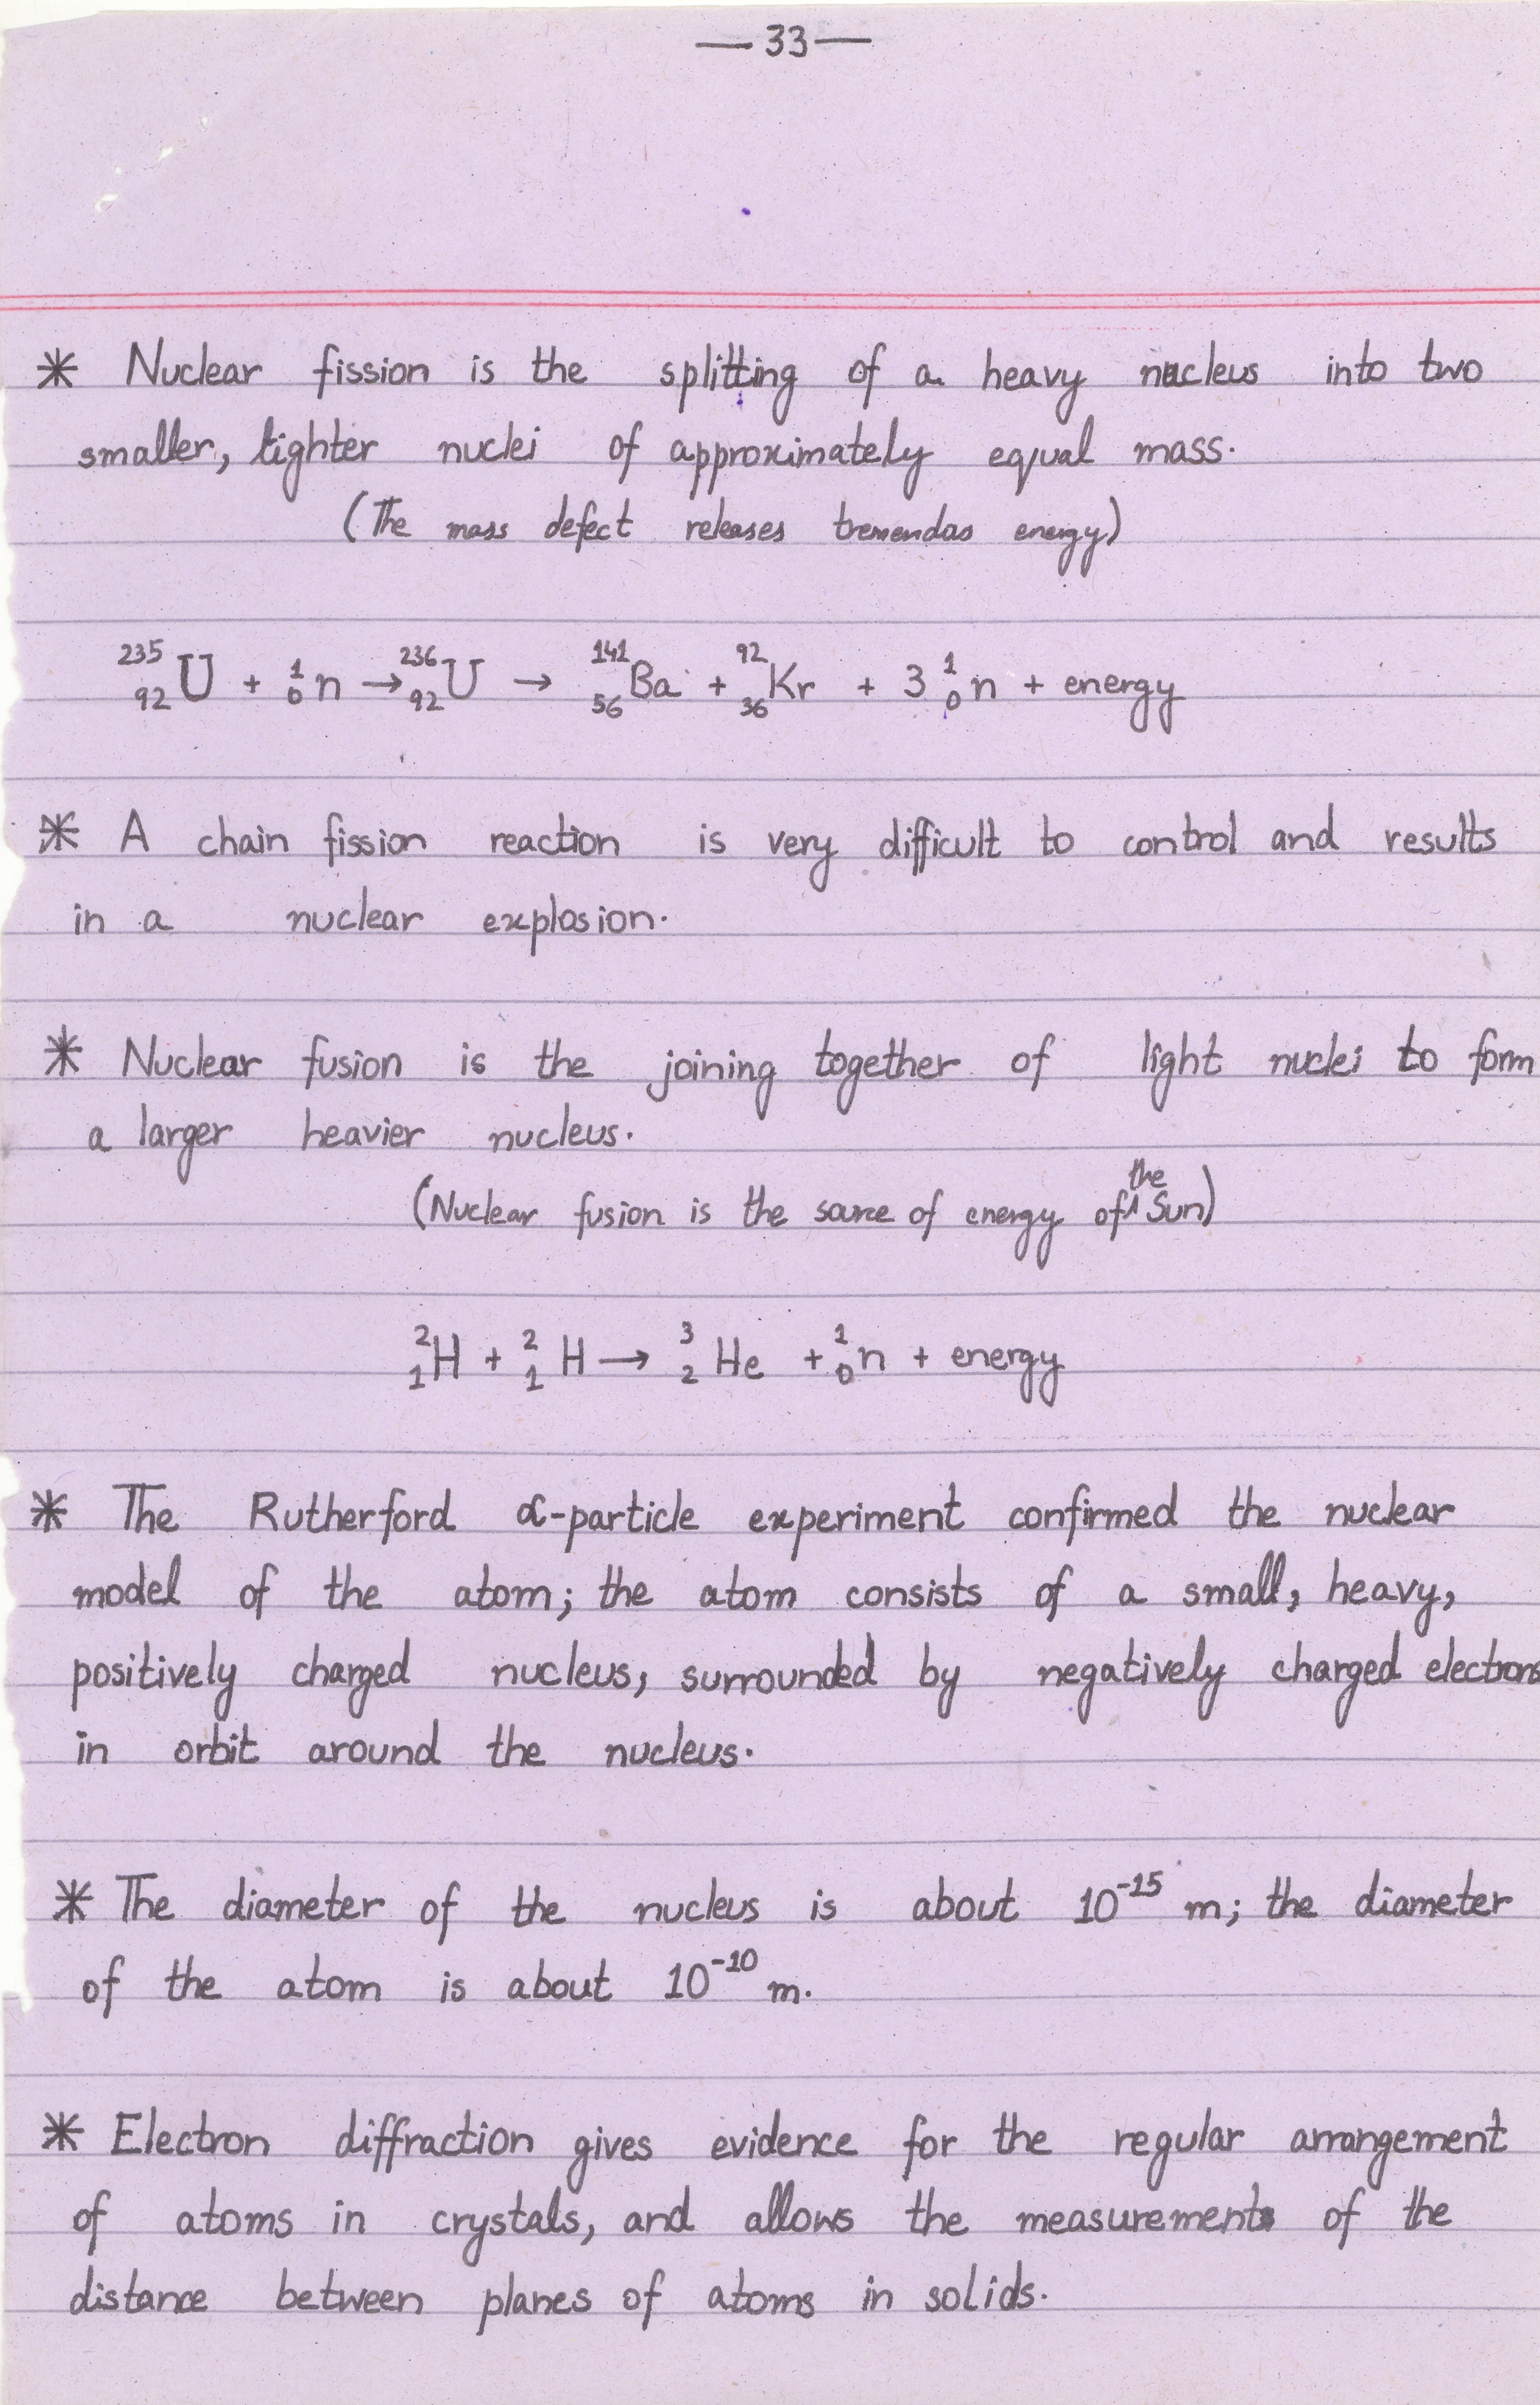 — 33 —
* Nuclear fission is the splitting of a heavy nucleus into two
smaller, lighter nuclei of approximately equal mass.
(The mass defect releases tremendas energy)
²³⁵₉₂U + ¹₀n → ²³⁶₉₂U → ¹⁴¹₅₆Ba + ⁹²₃₆Kr + 3 ¹₀n + energy
* A chain fission reaction is very difficult to control and results
in a nuclear explosion.
* Nuclear fusion is the joining together of light nuclei to form
a larger heavier nucleus.
(Nuclear fusion is the source of energy of the Sun)
²₁H + ²₁H → ³₂He + ¹₀n + energy
* The Rutherford α-particle experiment confirmed the nuclear
model of the atom; the atom consists of a small, heavy,
positively charged nucleus, surrounded by negatively charged electrons
in orbit around the nucleus.
* The diameter of the nucleus is about 10⁻¹⁵ m; the diameter
of the atom is about 10⁻¹⁰ m.
* Electron diffraction gives evidence for the regular arrangement
of atoms in crystals, and allows the measurements of the
distance between planes of atoms in solids.